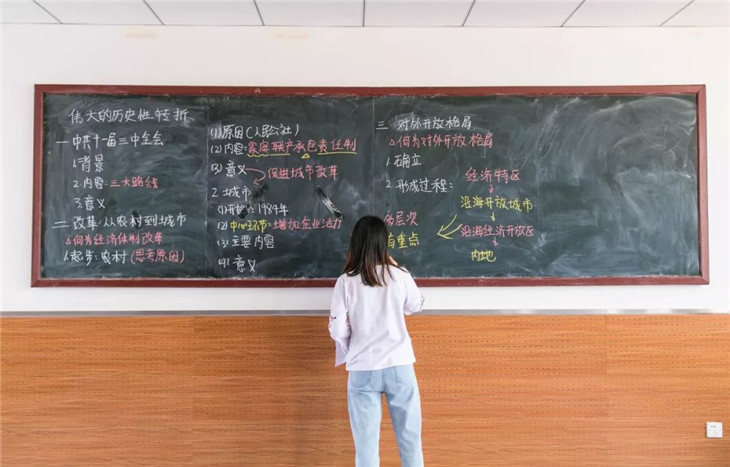 伟大的历史性转折
一 中共十一届三中全会
1.背景
2.内容:三大路线
3.意义
二 改革:从农村到城市
△何为经济体制改革
1.起步:农村(思考原因)
(1)原因(人民公社)
(2)内容:家庭联产承包责任制
(3)意义
促进城市改革
2.城市
(1)开始:1984年
(2)中心环节:增加企业活力
(3)主要内容
(4)意义
三 对外开放格局
△何为对外开放格局
1.确立
2.形成过程:
经济特区
沿海开放城市
沿海经济开放区
内地
层次
重点